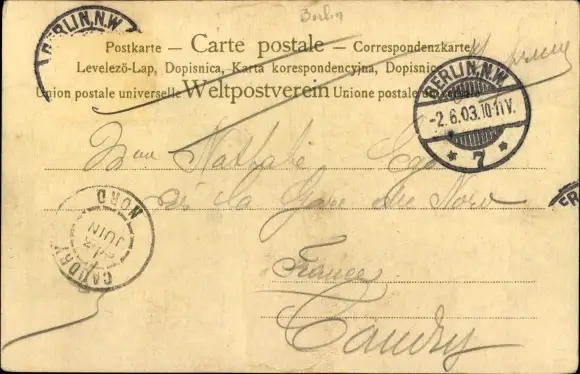 Berlin
BERLIN, N.W
Postkarte – Carte postale – Correspondenzkarte
Levelezö-Lap, Dopisnica, Karta korespondencyjna, Dopisnice
Union postale universelle Weltpostverein Unione postale
BERLIN, N.W.
-2.6.03.10-11V.
* 7 *
Nathalie
la Gare du Nord
CAUDRY
JUIN
NORD
France
Caudry